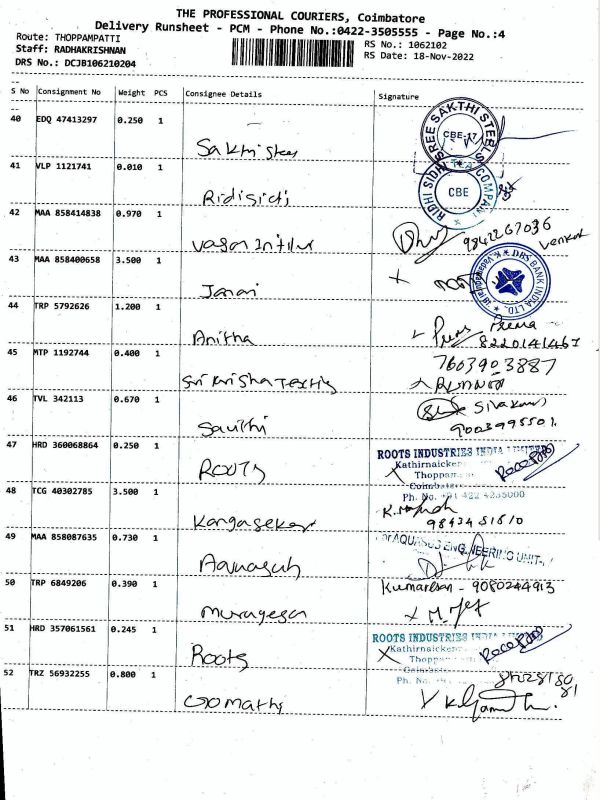 THE PROFESSIONAL COURIERS, Coimbatore
Delivery Runsheet - PCM - Phone No.:0422-3505555 - Page No.:4
Route: THOPPAMPATTI
RS No.: 1062102
Staff: RADHAKRISHNAN
RS Date: 18-Nov-2022
DRS No.: DCJB106210204
S No Consignment No Weight PCS Consignee Details Signature
40 EDQ 47413297 0.250 1
SREE SAKTHI STEELS
CBE-17
Sakthi Steel
41 VLP 1121741 0.010 1
RIDHI SIDHI TEA COMPANY
CBE
Ridisidi
42 MAA 858414838 0.970 1
9842267036
Venkat
43 MAA 858400658 3.500 1
DBS BANK INDIA LTD.
Janani
44 TRP 5792626 1.200 1
Prema
Anitha
8220141467
45 MTP 1192744 0.400 1
7603903887
Sri Krisha Textis
46 TVL 342113 0.670 1
Sivakumar
9003995501
47 HRD 360068864 0.250 1
ROOTS INDUSTRIES INDIA LIMITED
Kathirnaicken
Thoppam
Coimbatore
Ph. No. +91 422 4235000
ROOTS
48 TCG 40302785 3.500 1
9843481610
Kangasekar
49 MAA 858087635 0.730 1
For AQUASUB ENGINEERING UNIT-
Aquasub
50 TRP 6849206 0.390 1
Kumaresan - 9080244913
Murugesan
51 HRD 357061561 0.245 1
ROOTS INDUSTRIES INDIA LIMITED
Kathirnaicken
Thoppam
Roots
52 TRZ 56932255 0.800 1
Gomathi